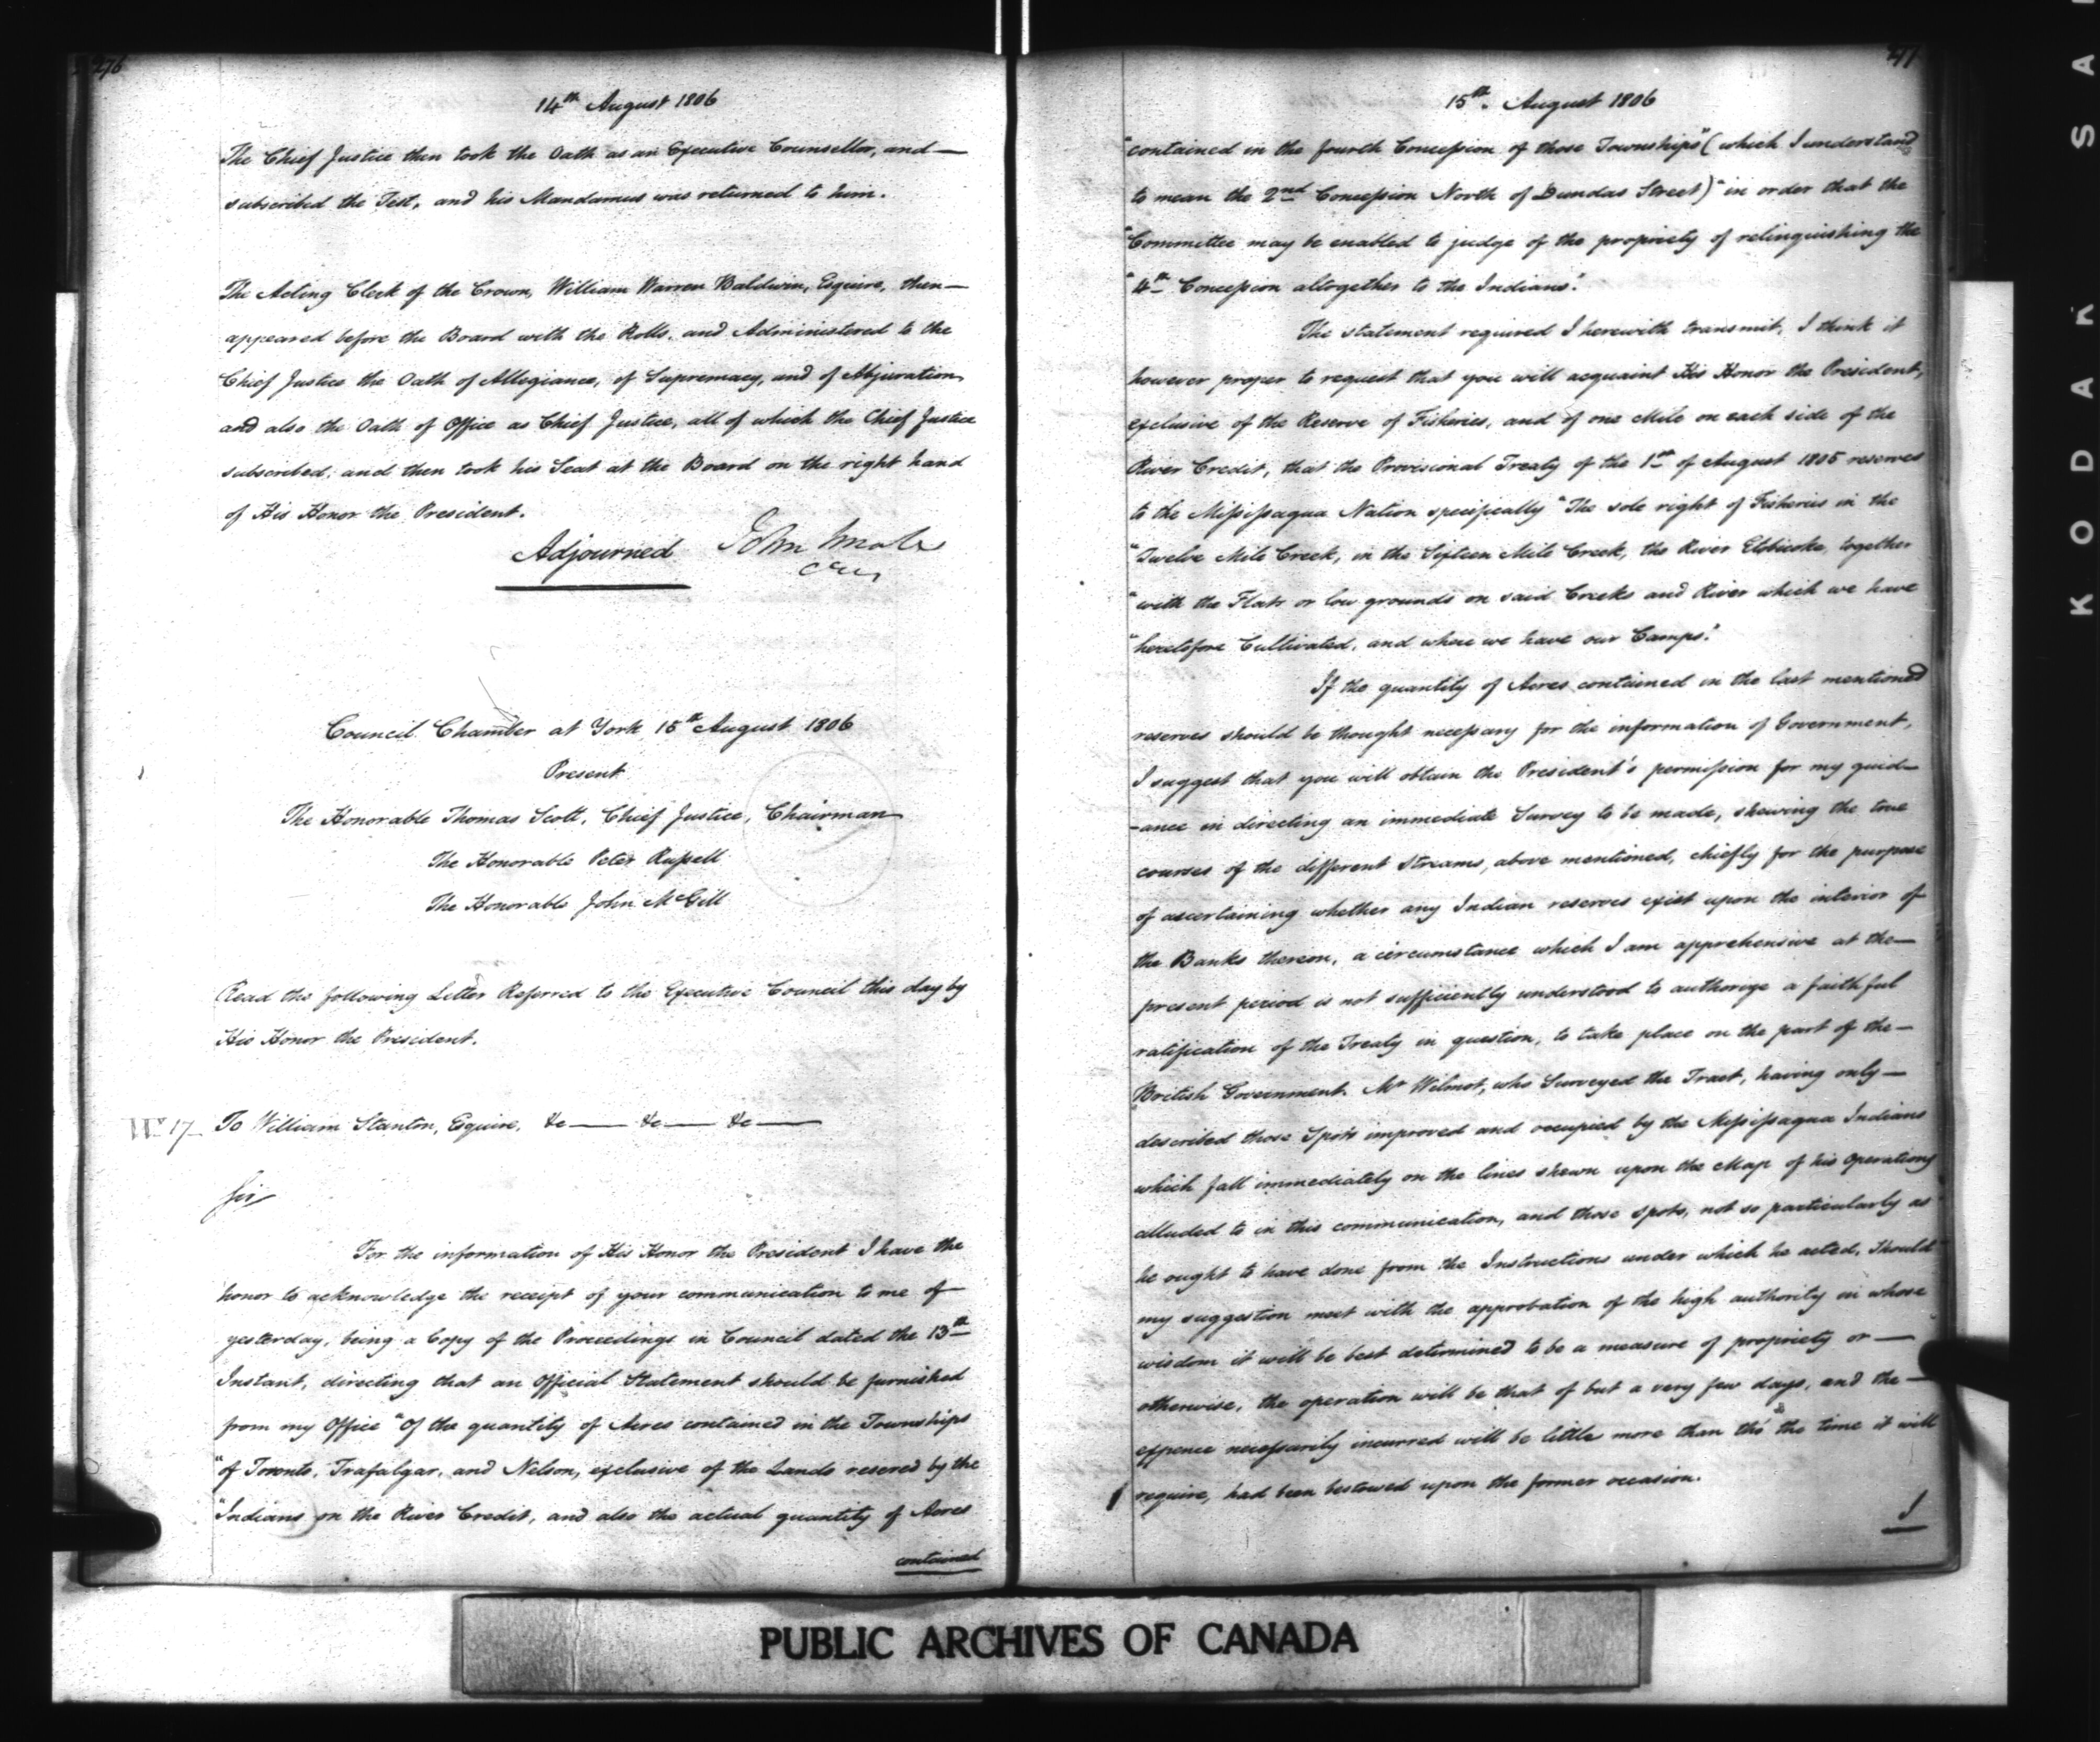 276
14th August 1806
The Chief Justice then took the Oath as an Executive Counsellor, and—
subscribed the Test, and his Mandamus was returned to him.
The Acting Clerk of the Crown, William Warren Baldwin, Esquire, then—
appeared before the Board with the Rolls, and Administered to the
Chief Justice the Oath of Allegiance, of Supremacy, and of Abjuration,
and also the Oath of Office as Chief Justice, all of which the Chief Justice
subscribed, and then took his Seat at the Board on the right hand
of His Honor the President.
Adjourned John
Council Chamber at York 15th August 1806
Present
The Honorable Thomas Scott, Chief Justice, Chairman
The Honorable Peter Russell
The Honorable John McGill
Read the following Letter Referred to the Executive Council this day by
His Honor the President.
17 To William Stanton, Esquire, &c— &c— &c—
Sir
For the information of His Honor the President I have the
honor to acknowledge the receipt of your communication to me of
yesterday, being a Copy of the Proceedings in Council dated the 13th
Instant, directing that an Official Statement should be furnished
from my Office "Of the quantity of Acres contained in the Townships
"of Toronto, Trafalgar, and Nelson, exclusive of the Lands resered by the
"Indians on the River Credit, and also the actual quantity of Acres
contained
277
15th. August 1806
"contained in the fourth Concession of those Townships" (which I understand
to mean the 2nd Concession North of Dundas Street) "in order that the
"Committee may be enabled to judge of the propriety of relinquishing the
"4th Concession altogether to the Indians".
The statement required I herewith transmit, I think it
however proper to request that you will acquaint His Honor the President,
exclusive of the Reserve of Fisheries, and of one Mile on each side of the
River Credit, that the Provisional Treaty of the 1st of August 1805 reserves
to the Missisagua Nation specifically "The sole right of Fisheries in the
"Twelve Mile Creek, in the Sixteen Mile Creek, the River Etobicoke, together
"with the Flats or low grounds on said Creeks and River which we have
"heretofore Cultivated, and where we have our Camps".
If the quantity of Acres contained in the last mentioned
reserves should be thought necessary for the information of Government,
I suggest that you will obtain the President's permission for my guid-
-ance in directing an immediate Survey to be made, shewing the true
courses of the different Streams, above mentioned, chiefly for the purpose
of ascertaining whether any Indian reserves exist upon the interior of
the Banks thereon, a circumstance which I am apprehensive at the—
present period is not sufficiently understood to authorize a faithful
ratification of the Treaty in question, to take place on the part of the—
British Government. Mr Wilmot, who Surveyed the Tract, having only—
described those Spots improved and occupied by the Missisagua Indians
which fall immediately on the lines shewn upon the Map of his Operations
alluded to in this communication, and those spots, not so particularly as
he ought to have done from the Instructions under which he acted. Should
my suggestion meet with the approbation of the high authority in whose
wisdom it will be best determined to be a measure of propriety or—
otherwise, the operation will be that of but a very few days, and the—
expence necessarily incurred will be little more than tho' the time it will
require, had been bestowed upon the former occasion.
I
PUBLIC ARCHIVES OF CANADA
KODAK SA